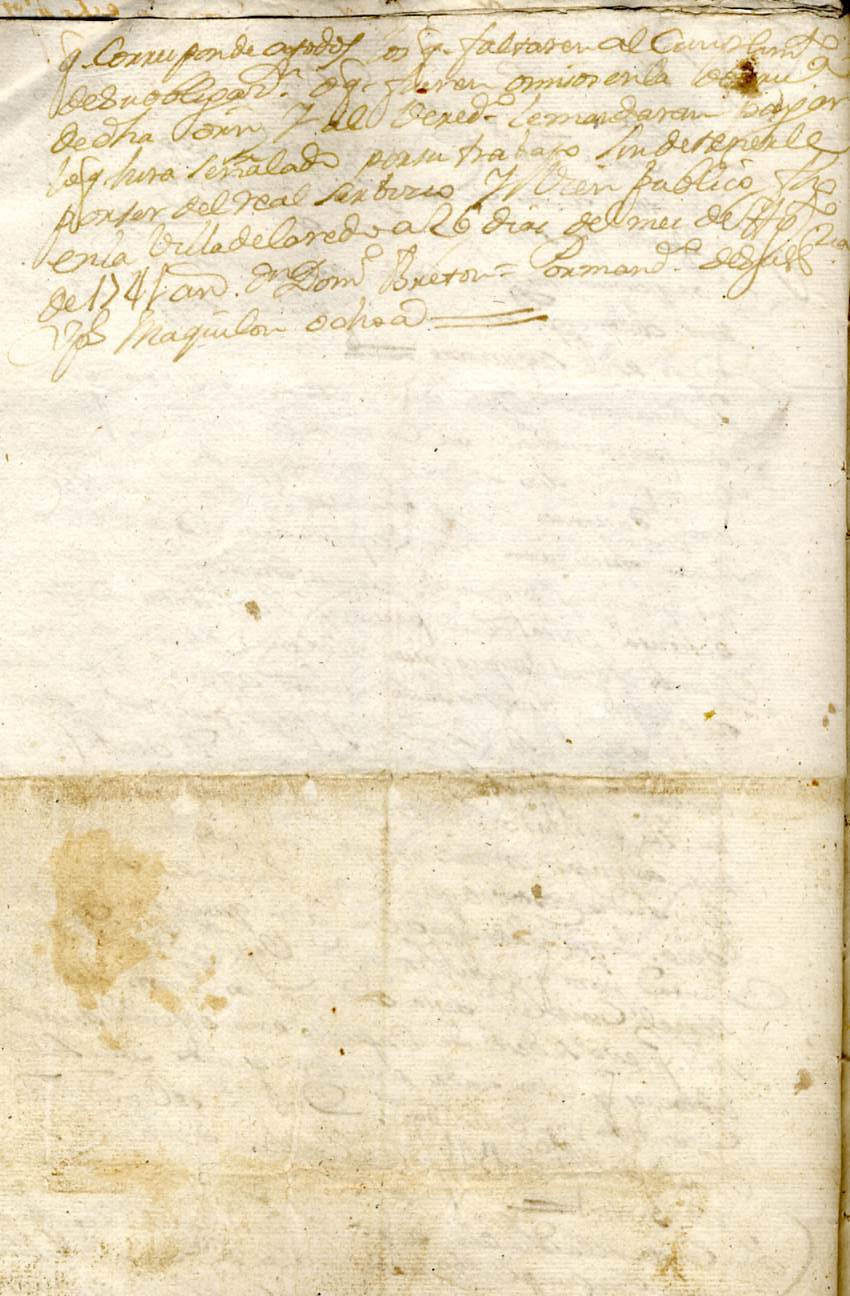 q. Corresponde a todos los q. faltaren al Cumplim.to
de su obligaz.n o q. fueren omisos en la
de dha orn y al Vered.o le mandaran pagar
lo q. fura señalado por su trabajo sin detenerle
por ser del real serbizio y Vien publico, fho
en la Villa de laredo a 26 dias del mes de
de 1741 an. Dn Dom.o Breton = Por mand.o de su
Jph Maquilon ochoa